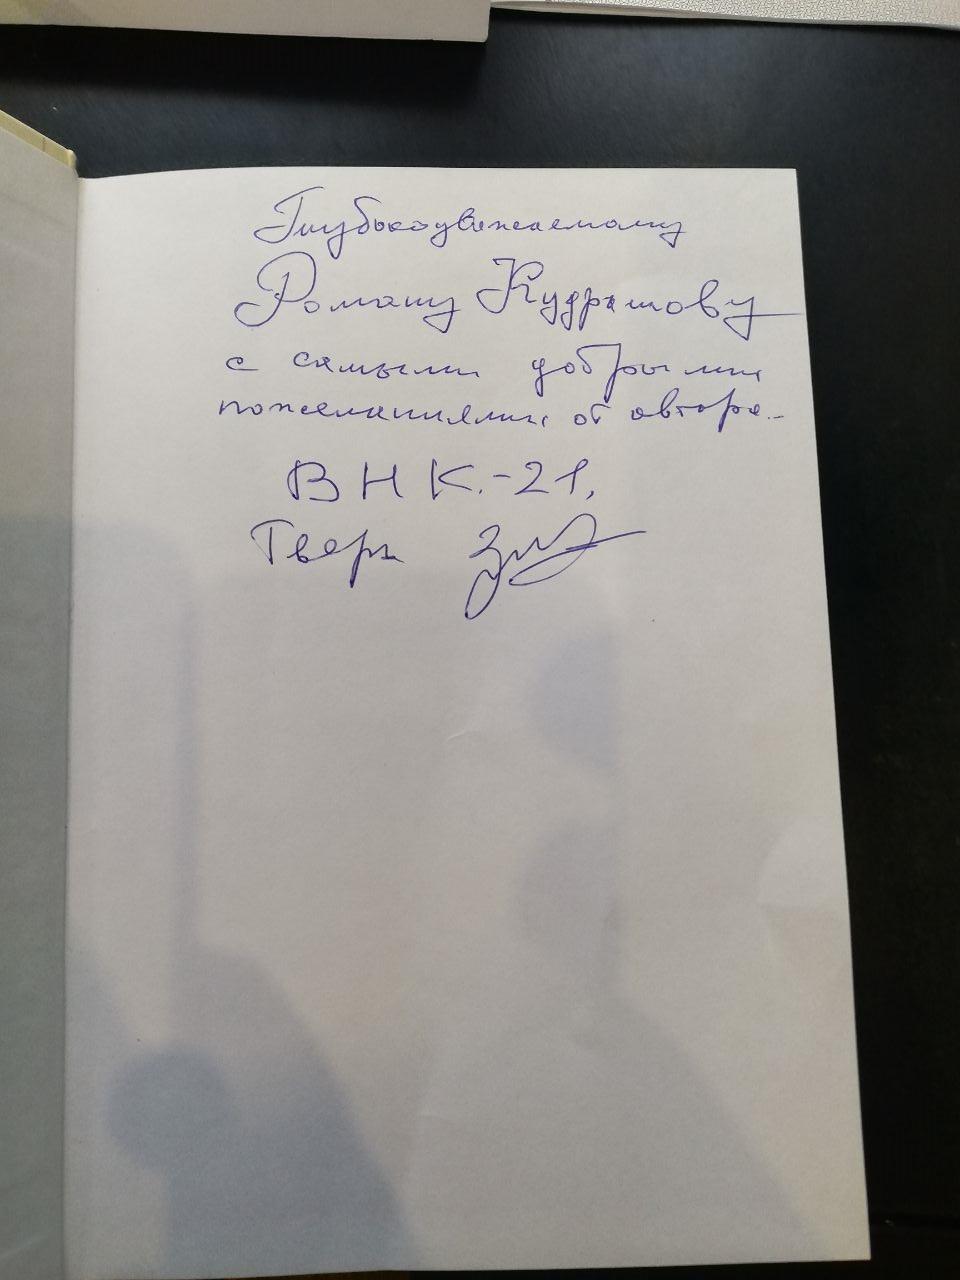 Глубокоуважаемому
Роману Кудряшову
с самыми добрыми
пожеланиями от автора.
ВНК.-21.
Тверь